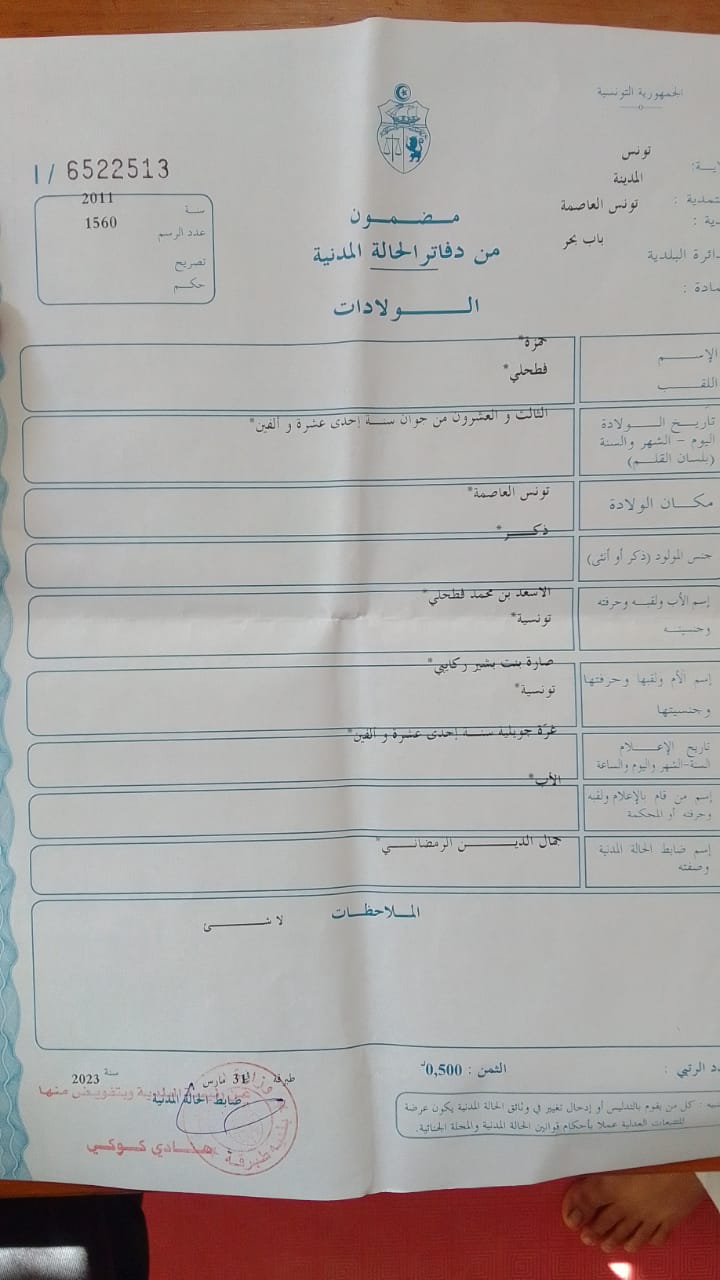 الجمهورية التونسية
تونس
المدينة
تونس العاصمة
باب بحر
دائرة البلدية
I / 6522513
سنة 2011
عدد الرسم 1560
تصريح
حكم
مضمون
من دفاتر الحالة المدنية
الولادات
الإسم
حمزة*
اللقب
فطحلي*
تاريخ الولادة
اليوم – الشهر والسنة
(بلسان القلم)
الثالث و العشرون من جوان سنة إحدى عشرة و ألفين*
مكان الولادة
تونس العاصمة*
جنس المولود (ذكر أو أنثى)
ذكر*
إسم الأب ولقبه وحرفته
وجنسيته
الاسعد بن محمد فطحلي*
تونسية*
إسم الأم ولقبها وحرفتها
وجنسيتها
صارة بنت بشير ركابي*
تونسية*
تاريخ الإعلام
السنة-الشهر واليوم والساعة
غرّة جويلية سنة إحدى عشرة و ألفين*
إسم من قام بالإعلام ولقبه
وحرفته أو المحكمة
الأب*
إسم ضابط الحالة المدنية
وصفته
جمال الدين الرمضاني*
الملاحظات
لا شئ
الرتبي :
الثمن : 0,500د
طبرقة 31 مارس سنة 2023
ضابط الحالة المدنية
البلدية وبتفويض منها
هنادي كوكي
: كل من يقوم بالتدليس أو إدخال تغيير في وثائق الحالة المدنية يكون عرضة
للتتبعات العدلية عملا بأحكام قوانين الحالة المدنية والمجلة الجنائية.